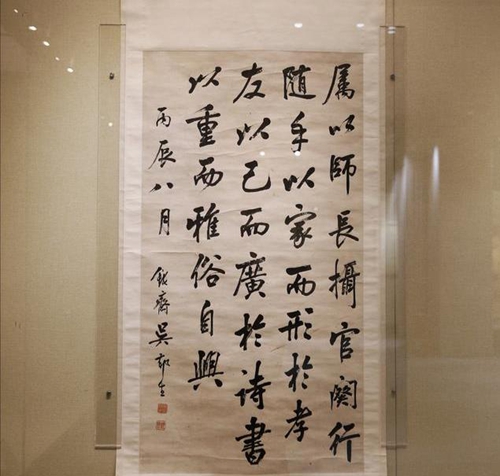 属以師長攝官闕行
随手以家而形於孝
友以己而廣於诗書
以重而雅俗自興
丙辰八月 鈍齋吴郁生